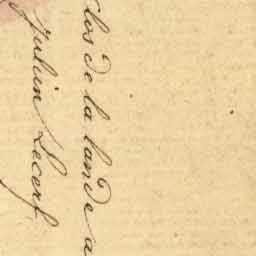 Clos de la lande a
Julien Lecerf